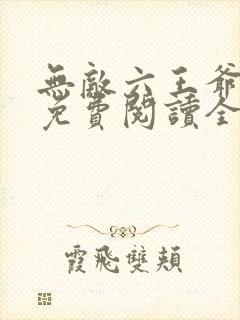 無敵六王爺
免費閱讀全
霞飛雙頰